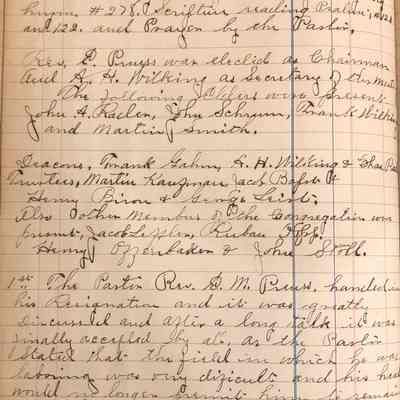 hymn # 278. Scripture reading Psalm
and 122. and Prayer by the Pastor.
Rev. E. Pruys was elected as Chairman
And H. H. Wilking as Secretary of this meeting
The following Elders were present
John A. Raelen, John Schrynn, Frank Wilking
and Martin Smith.
Deacons, Frank Gahm, H. H. Wilking & Chas
Trustees, Martin Kaufman Jacob Bafst
Henry Biron & George Leist.
Also other Members of the Congregation were
present, Jacob Lessler, Reuben
Henry Offenbaker & John Stoll.
1st The Pastor Rev. E. M. Pruys. handed in
his Resignation and it was greatly
discussed and after a long talk it was
finally accepted by all, as the Pastor
Stated that the field in which he was
laboring was very dificult and his health
would no longer permit him to remain